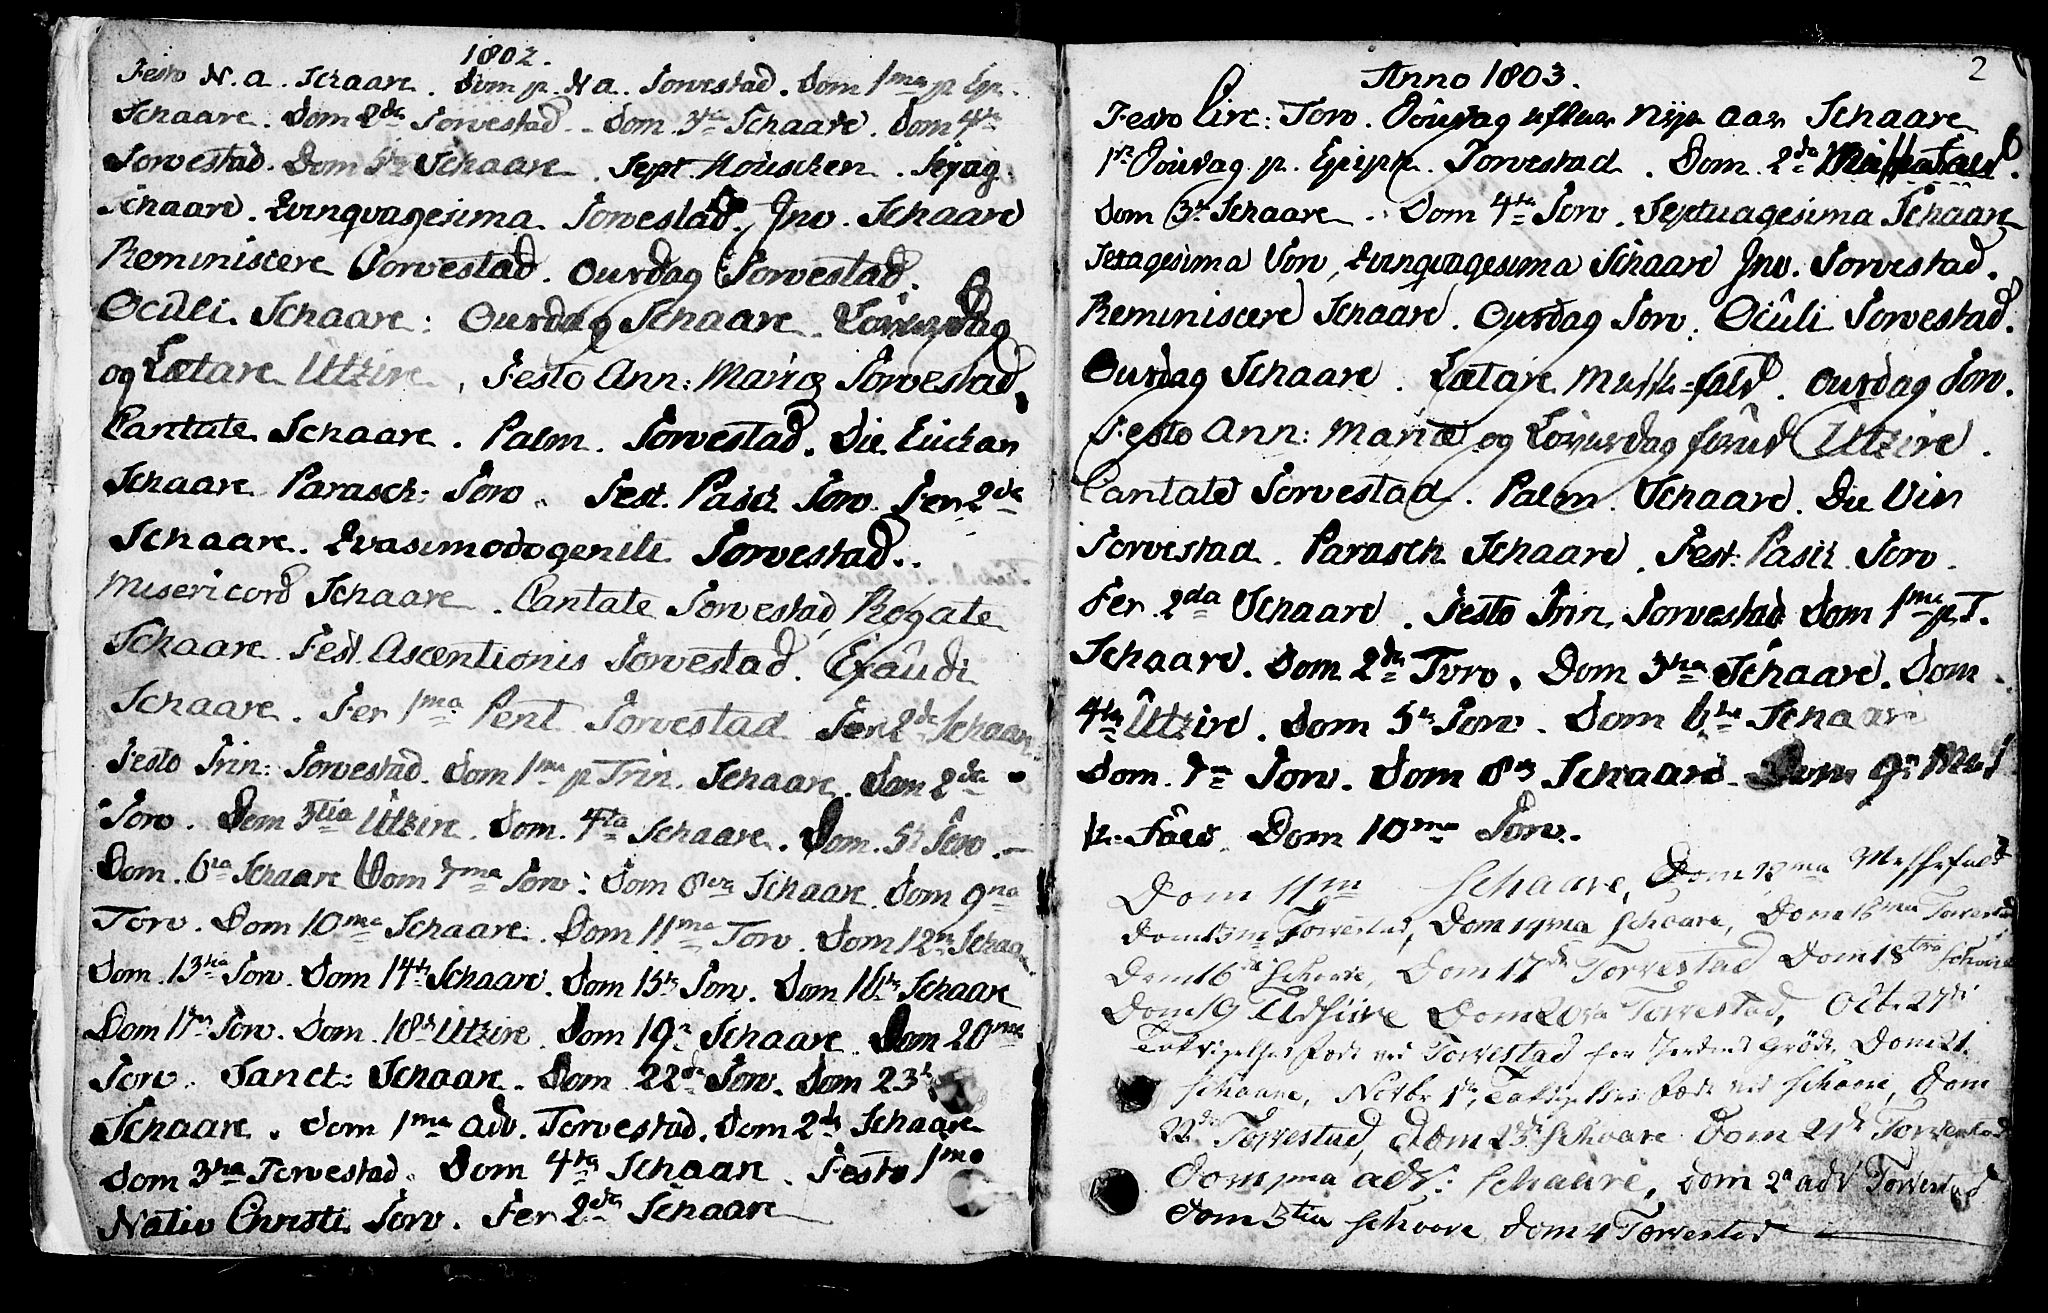 1802.
Festo N. a. Schaare. Dom p. N a. Torvestad. Dom 1ma p Ep.
Schaare. Dom 2da Torvestad. Dom. 3tia Schaare. Dom 4ta
Torvestad. Dom 5ta Schaare. Sept. Houschen. Sexag.
Schaare. Qvinqvagesima Torvestad. Inv. Schaare
Reminiscere Torvestad. Ousdag Torvestad.
Oculi. Schaare: Ousdag Schaare. Löverdag
og Lætare Utzire, Festo Ann: Mariæ Torvestad,
Cantate Schaare. Palm. Torvestad. Die Euchar
Schaare Parasch: Torv. Fest. Pasch Torv. Fer 2da
Schaare. Qvasimodogeniti Torvestad.
Misericord Schaare. Cantate Torvestad, Rogate
Schaare. Fest. Ascentionis Torvestad. Exaudi
Schaare. Fer 1ma Pent Torvestad Fer 2da Schaar
Festo Trin: Torvestad. Dom 1ma p Trin. Schaare. Dom 2da
Torv. Dom 3tia Utzire. Dom. 4ta Schaare. Dom. 5t Torv.
Dom. 6ta Schaare Dom 7ma Torv: Dom 8va Schaare. Dom 9na
Torv. Dom 10ma Schaare. Dom 11ma Torv. Dom 12m Schaa
Dom. 13tia Torv. Dom 14ta Schaare. Dom 15ta Torv. Dom 16ta Schaare
Dom 17m Torv. Dom. 18d Utzire. Dom 19n Schaare. Dom 20ma
Torv. Sanct: Schaare. Dom 22da Torv. Dom 23t
Schaare. Dom 1ma Adv. Torvestad. Dom 2da Schaare
Dom 3tia Torvestad. Dom 4ta Schaare. Festo 1mo
Nativ Christi Torv. Fer 2da Schaare
2
Anno 1803.
Festo Circ: Torv. Söndag efter Nyt Aar Schaare
1te Söndag p. Epiph. Torvestad. Dom. 2da
Dom 3t Schaare. Dom 4ta Torv. Septuagesima Schaare
Sexagesima Torv, Qvinqvagesima Schaare Inv. Torvestad.
Reminiscere Schaare. Ousdag Torv. Oculi Torvestad.
Ousdag Schaare. Lætare Misse-fald. Ousdag Torv.
Festo Ann: Mariæ og Löverdag forud Utzire.
Cantate Torvestad. Palm. Schaare. Die Vir
Torvestad. Parasch Schaare. Fest: Pasch. Torv.
Fer 2da Schaare. Festo Trin. Torvestad Dom 1ma p T.
Schaare. Dom 2da Torv. Dom 3tia Schaare. Dom
4ta Utzire. Dom 5ta Torv. Dom 6ta Schaare
Dom. 7m Torv. Dom 8va Schaare. Dom 9n Mes
Dom 10ma Torv.
Dom 11m Schaare, Dom 12ma Messefald
Dom 13m Torvestad, Dom 14ma Schaare, Dom 15ma Torvestad
Dom 16de Schaare, Dom 17da Torvestad Dom 18tva Schaare
Dom 19 Udsiire Dom 20ma Torvestad, Oct. 27di
Taksigelses fæst ved Torvestad for Jordens Gröde, Dom 21
Schaare, Novbr 1te, Taksigelses fæst ved Schaare, Dom
22da Torvestad, Dom 23t Schaare Dom 24t Torvestad
Dom 1ma adv: Schaare, Dom 2a adv Torvestad
Dom 3tia Schaare Dom 4 Torvestad